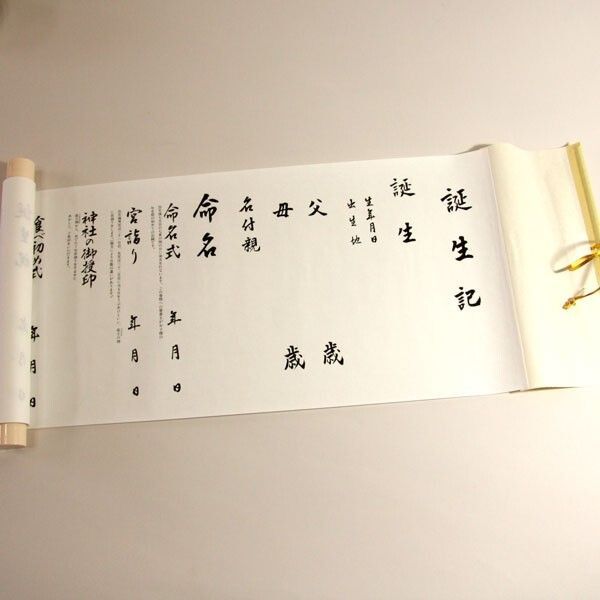 誕生記
誕生
生年月日
出生地
父 歳
母 歳
名付親
命名
命名式 年 月 日
宮詣り 年 月 日
神社の御授印
食べ初め式 年 月 日